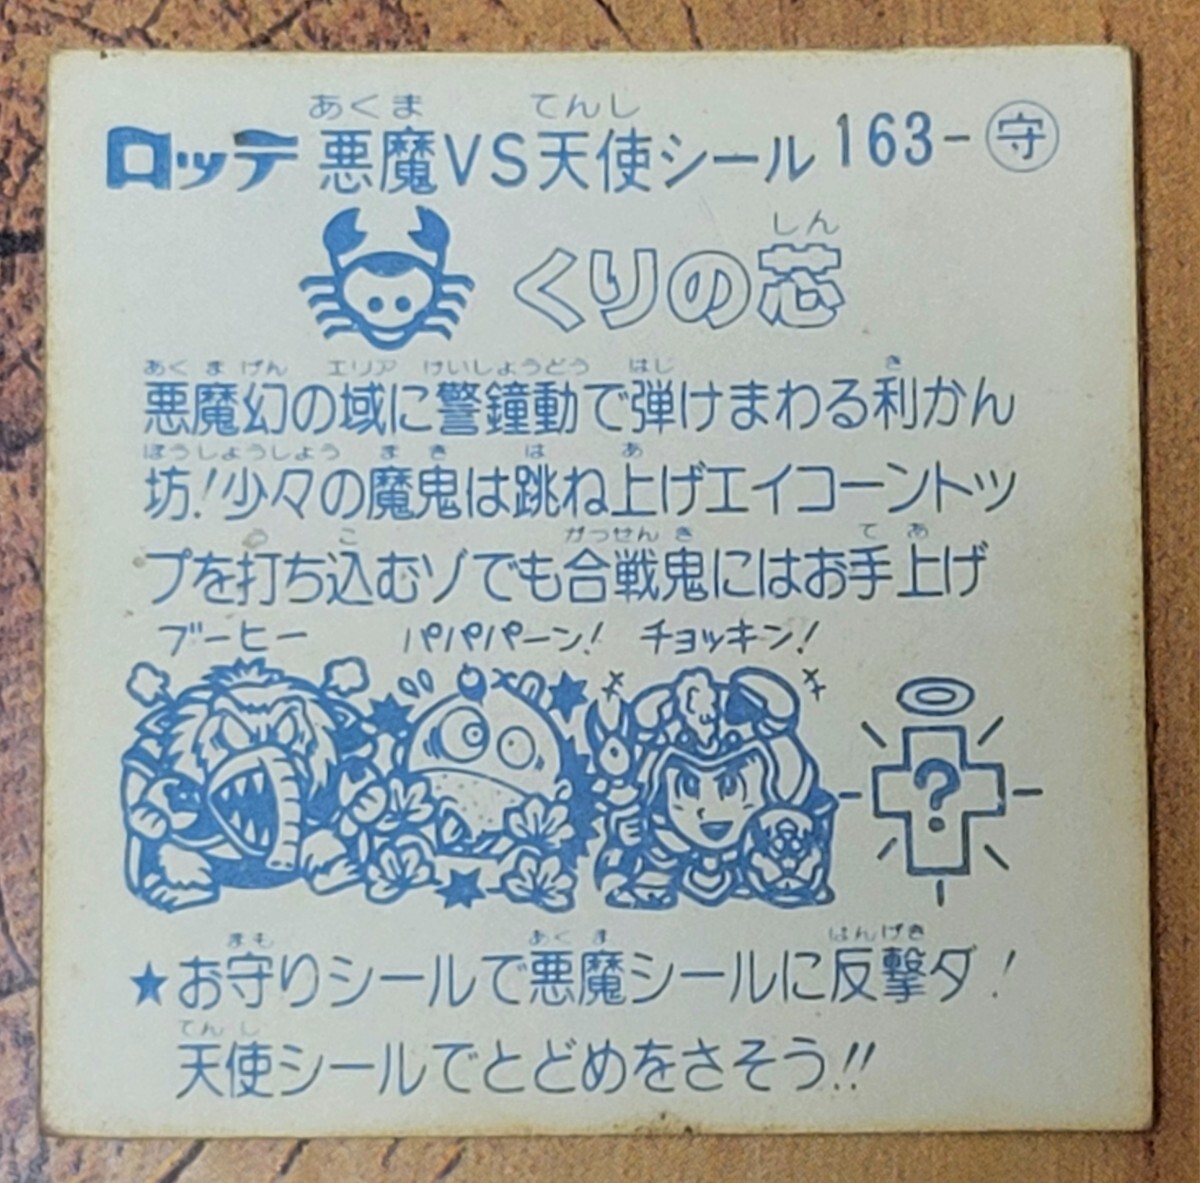 あくま てんし
ロッテ 悪魔VS天使シール 163-守
しん
くりの芯
あくまげん エリア けいしょうどう はじ き
悪魔幻の域に警鐘動で弾けまわる利かん
ぼうしょうしょう まき は あ
坊!少々の魔鬼は跳ね上げエイコーントッ
う こ がっせんき てあ
プを打ち込むゾでも合戦鬼にはお手上げ
ブーヒー パパパーン! チョッキン!
?
まも あくま はんげき
★お守りシールで悪魔シールに反撃ダ!
てんし
天使シールでとどめをさそう!!